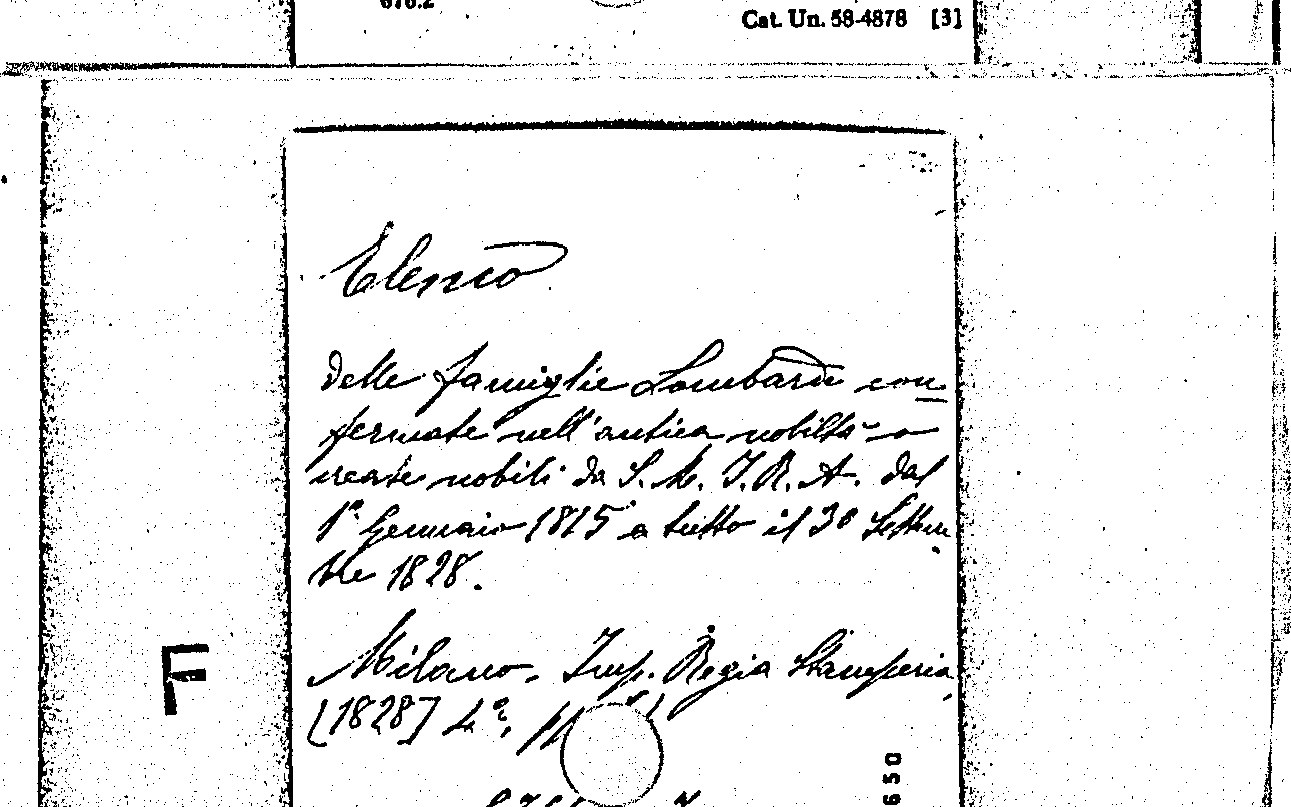 Cat. Un. 58-4878 [3]
Elenco
delle famiglie Lombarde con
fermate nell'antica nobiltà o
create nobili da S. M. I. R. A. dal
1° Gennaio 1815 a tutto il 30 Settem
bre 1828.
Milano, Imp. Regia Stamperia,
[1828] 4°,
F
650